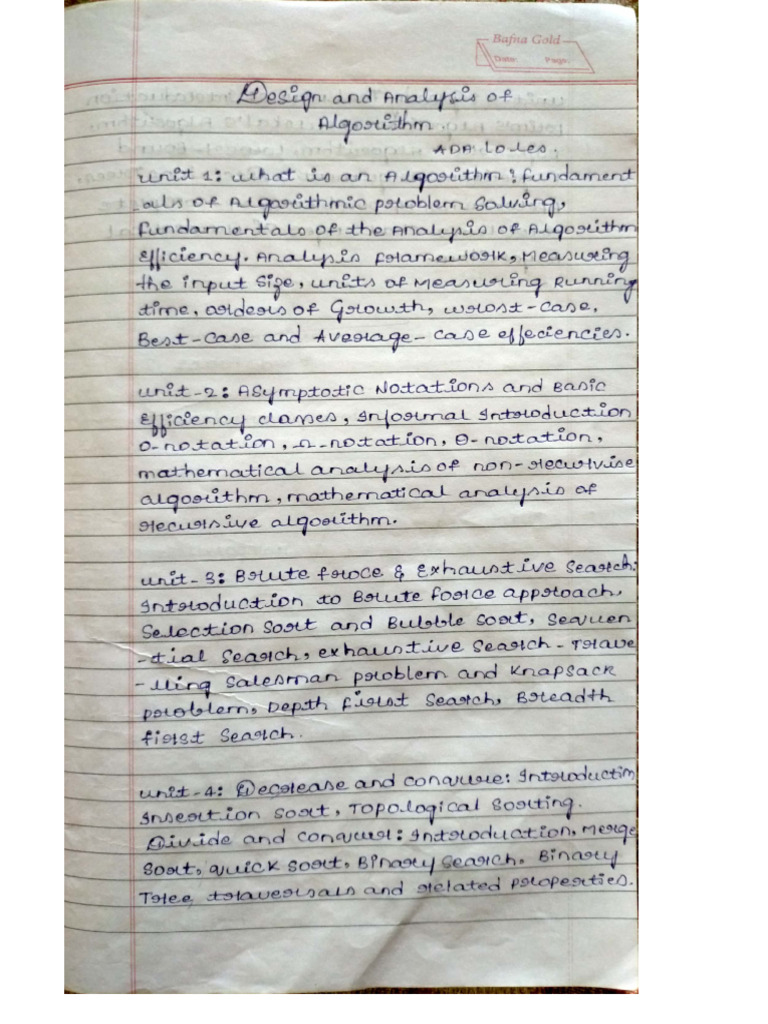 Bafna Gold
Date: Page:
Design and Analysis of
Algorithm.
ADA
unit 1: what is an Algorithm; fundament
als of Algorithmic problem Salving,
fundamentals of the Analysis of Algorithm
Efficiency. Analysis framework, Measuring
the input Size, units of Measuring Running
time, orders of Growth, worst-case,
Best-case and Average-case effeciencies.
unit-2: Asymptotic Notations and Basic
Efficiency classes, informal introduction
O-notation, Ω-notation, θ-notation,
mathematical analysis of non-recurvise
algorithm, mathematical analysis of
recursive algorithm.
unit-3: Brute froce & Exhaustive Search:
introduction to Brute force approach,
Selection Sort and Bubble Sort, Sequen
-tial Search, exhaustive Search - Trave
-lling Salesman problem and Knapsack
problem, Depth first Search, Breadth
first Search.
unit-4: Decrease and conqure: Introductin
Insertion Sort, Topological Sorting.
Divide and conqur: introduction, Merge
Sort, quick Sort, Binary Search, Binary
Tree, traversals and related properties.